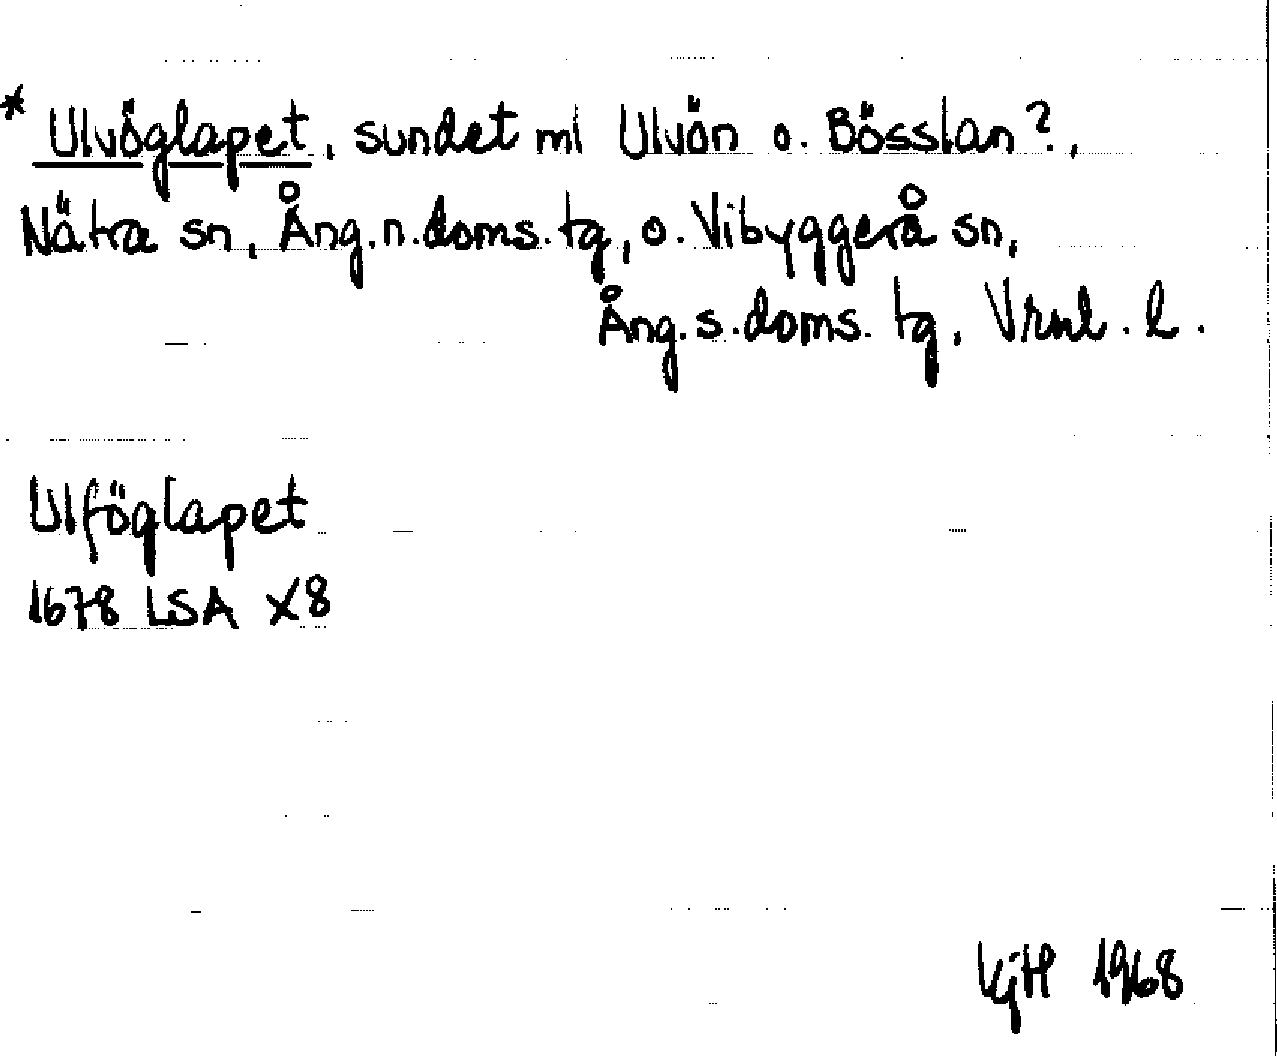 * Ulvöglapet, sundet ml Ulvön o. Bösslan?,
Nätra sn, Ång.n.doms.tg, o. Vibyggerå sn,
Ång.s.doms.tg, Vrnl.l.
Ulföglapet
1678 LSA X8
KjH 1968